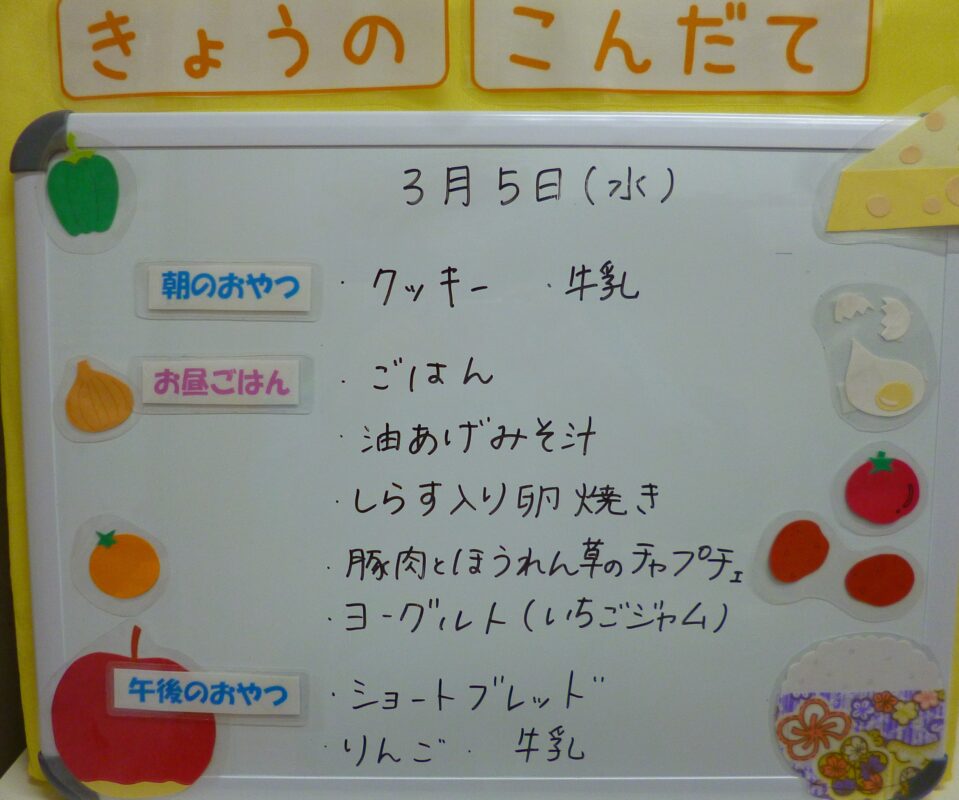 きょうの こんだて
3月5日(水)
朝のおやつ ・クッキー ・牛乳
お昼ごはん ・ごはん
・油あげみそ汁
・しらす入り卵焼き
・豚肉とほうれん草のチャプチェ
・ヨーグルト(いちごジャム)
午後のおやつ ・ショートブレッド
・りんご ・牛乳